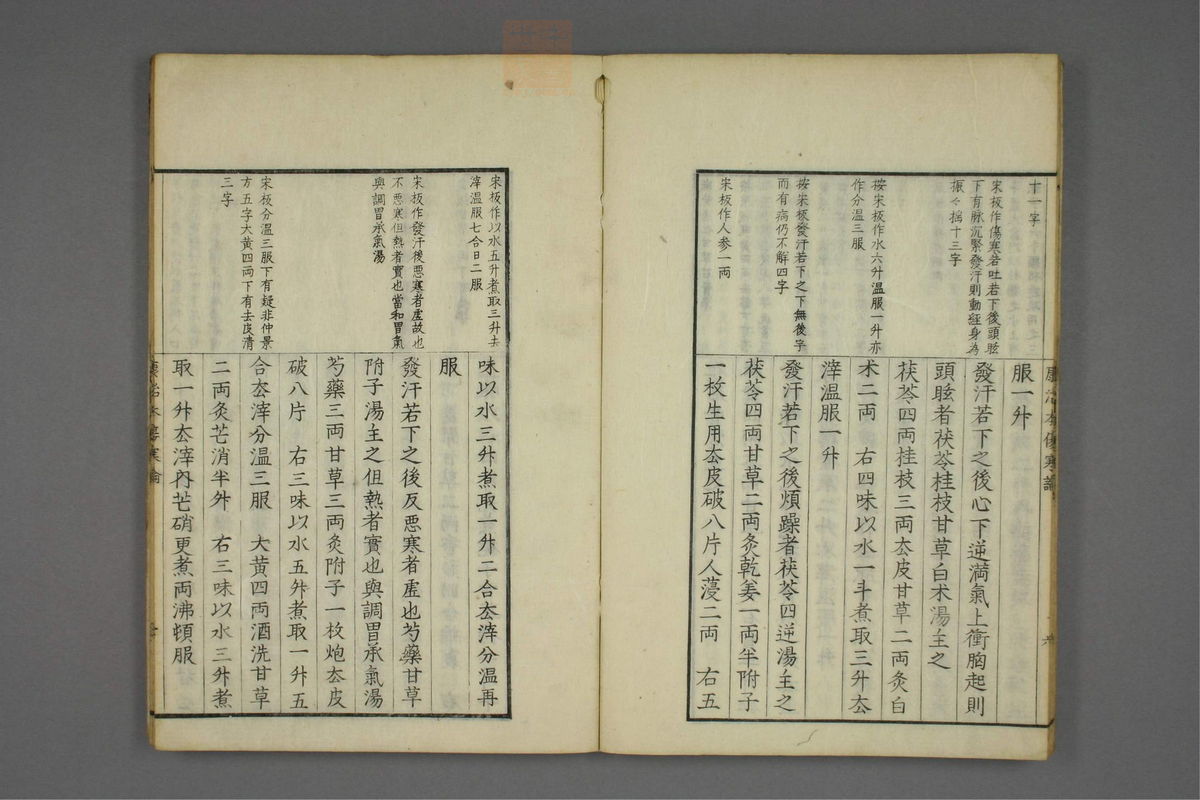 十一字
宋板作傷寒若吐若下後頭眩
下有脉沉緊發汗則動經身為
振々揺十三字
按宋板作水六升温服一升亦
作分温三服
按宋板發汗若下之下無後字
而有病仍不解四字
宋板作人参一両
康治本傷寒論
服一升
發汗若下之後心下逆満氣上衝胸起則
頭眩者茯苓桂枝甘草白术湯主之
茯苓四両桂枝三両去皮甘草二両炙白
术二両　右四味以水一斗煮取三升去
滓温服一升
發汗若下之後煩躁者茯苓四逆湯主之
茯苓四両甘草二両炙乾姜一両半附子
一枚生用去皮破八片人薓二両　右五
宋板作以水五升煮取三升去
滓温服七合日二服
宋板作發汗後悪寒者虚故也
不悪寒但熱者實也當和胃氣
與調胃承氣湯
宋板分温三服下有疑非仲景
方五字大黄四両下有去皮清
三字
味以水三升煮取一升二合去滓分温再
服
發汗若下之後反悪寒者虚也芍藥甘草
附子湯主之但熱者實也與調胃承氣湯
芍藥三両甘草三両炙附子一枚炮去皮
破八片　右三味以水五升煮取一升五
合去滓分温三服　大黄四両酒洗甘草
二両炙芒消半升　右三味以水三升煮
取一升去滓内芒硝更煮両沸頓服
康治本傷寒論